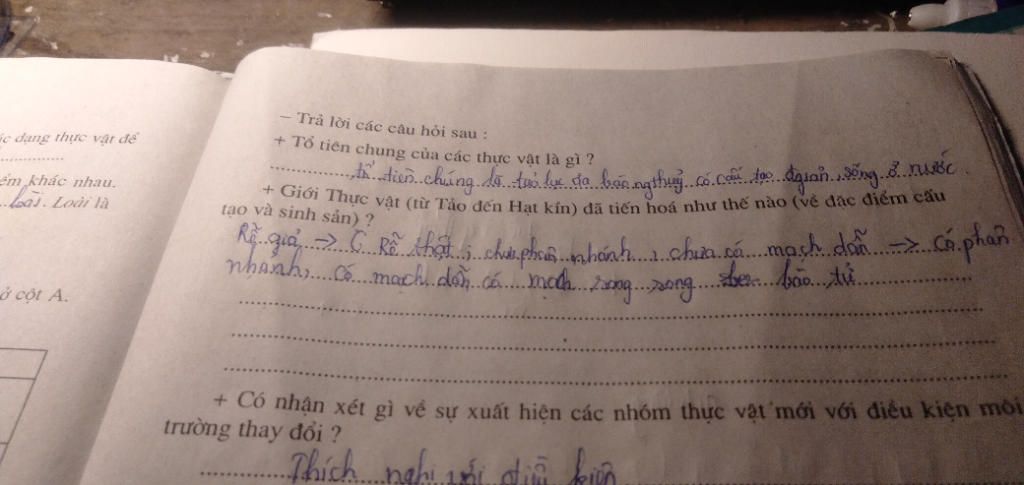 ác dạng thực vật để
ểm khác nhau.
loài. Loài là
ở cột A.
– Trả lời các câu hỏi sau :
+ Tổ tiên chung của các thực vật là gì ?
tổ tiên chung là tảo lục đa bào ng thuỷ có cấu tạo đ giản, sống ở nước.
+ Giới Thực vật (từ Tảo đến Hạt kín) đã tiến hoá như thế nào (về đặc điểm cấu
tạo và sinh sản) ?
Rễ giả -> C Rễ thật ; chưa phân nhánh, chưa có mạch dẫn -> Có phân
nhánh, có mạch dẫn có mạch song song bào tử
+ Có nhận xét gì về sự xuất hiện các nhóm thực vật mới với điều kiện môi
trường thay đổi ?
Thích nghi với điều kiện